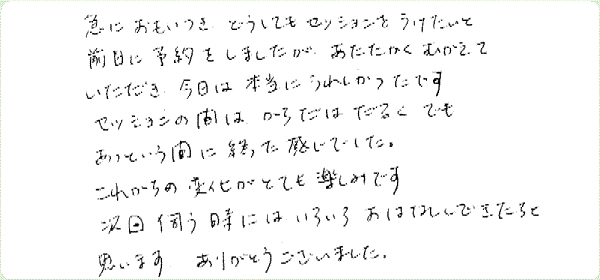 急におもいつき どうしてもセッションをうけたいと
前日に予約をしましたが、あたたかくむかえて
いただき 今日は本当にうれしかったです
セッションの間は からだはだるく でも
あっという間に終った感じでした。
これからの変化がとても楽しみです
次回伺う時には いろいろ おはなしんできたらと
思います ありがとうございました。